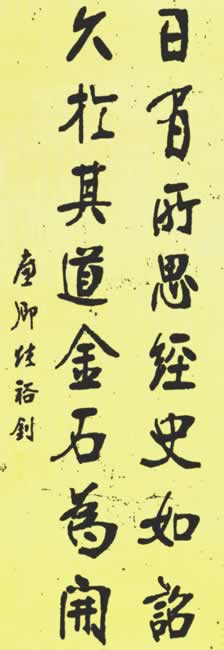 日有所思經史如詔
久於其道金石為開
廉卿張裕釗